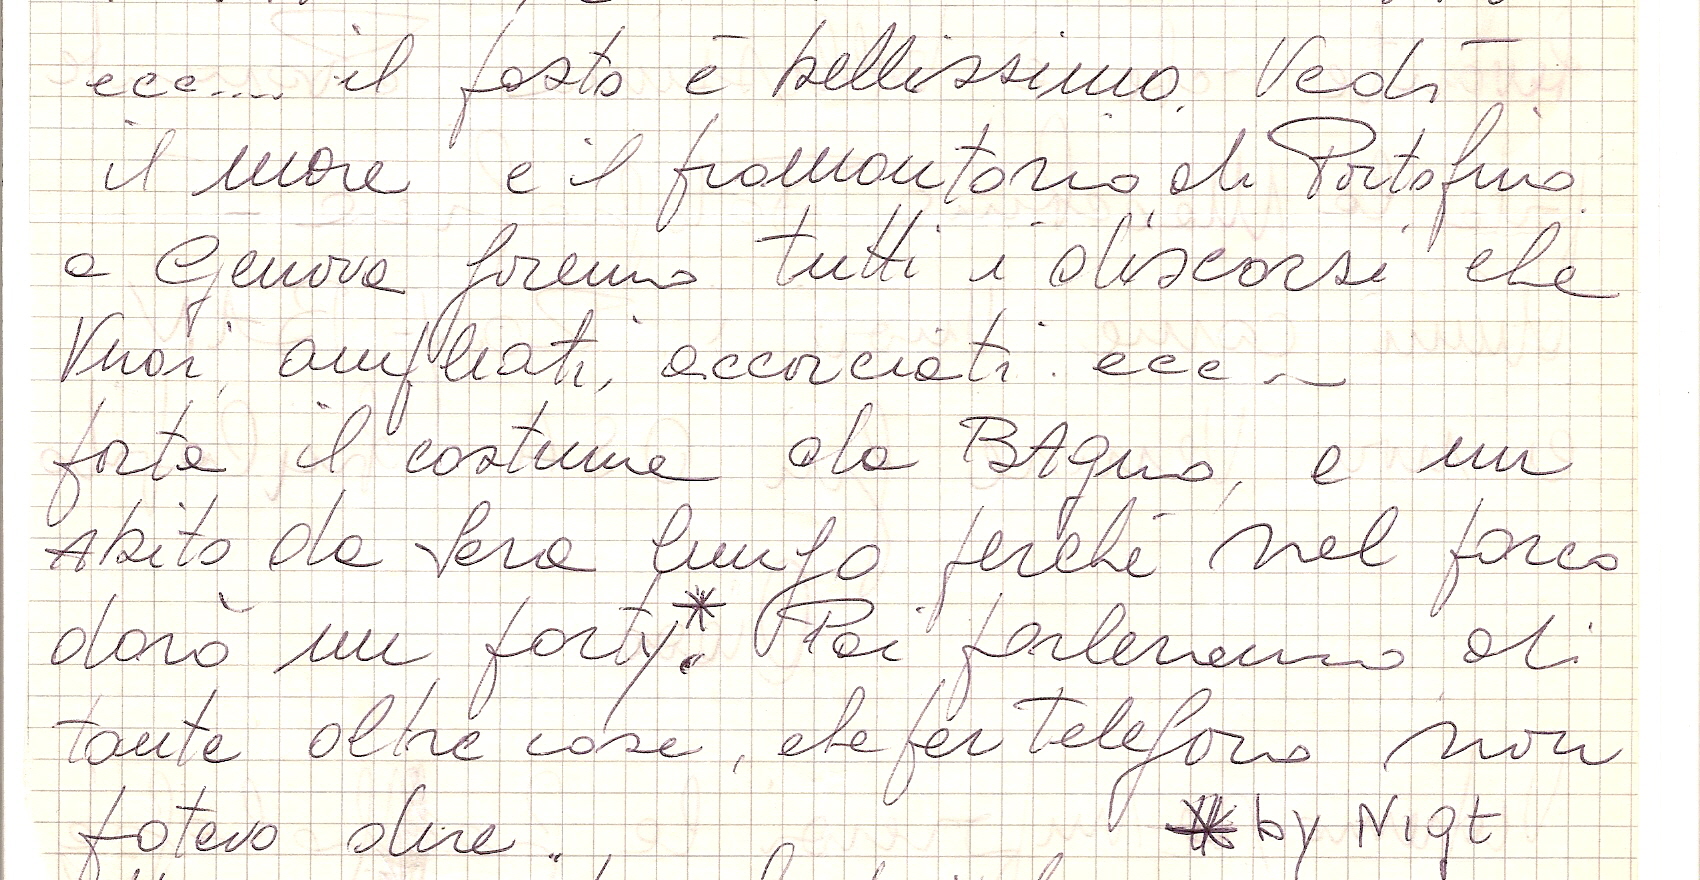 ecc.... il posto è bellissimo. Vedi
il mare e il promontorio di Portofino
a Genova faremo tutti i discorsi che
Vuoi, ampliati, accorciati. ecc -
porta il costume da BAgno, e un
Abito da Sera lungo perchè nel parco
darò un party*. Poi parleremo di
tante altre cose, che per telefono non
potevo dire..
* by Nigt